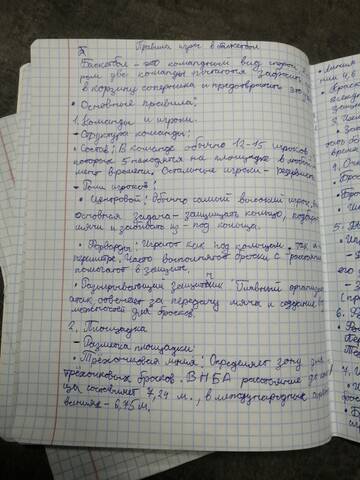 Правила игры в баскетбол
Баскетбол - это командный вид спорта, в
ром две команды пытаются забросить
в корзину соперника и предотвратить это
• Основные правила:
1. Команды и игроки.
- Структура команды:
• Состав: В команде обычно 12-15 игроков,
которые 5 находятся на площадке в любой мо
мент времени. Остальные игроки - резервисты
- Типы игроков:
• Центровой: Обычно самый высокий игрок,
Основная задача - защищать кольцо, подбирать
мячи и забивать из - под кольца.
• Форварды: Играют как под кольцом, так и
периметре. Часто выполняют броски с расстояния
помогают в защите.
• Разыгрывающий защитник: Главный организатор
атак, отвечает за передачу мяча и создание воз
можностей для бросков.
2. Площадка
- Размета площадки:
• Трёхочковая линия: Определяет зону для
трёхочковых бросков. В НБА расстояние до
цы составляет 7,24 м., в международных
- 6,75 м.
• Линия
нии 4,6
• Враск
3. Чем
время
4. Оч
• Брос
• Бро
• Бро
6. Ф
7. И